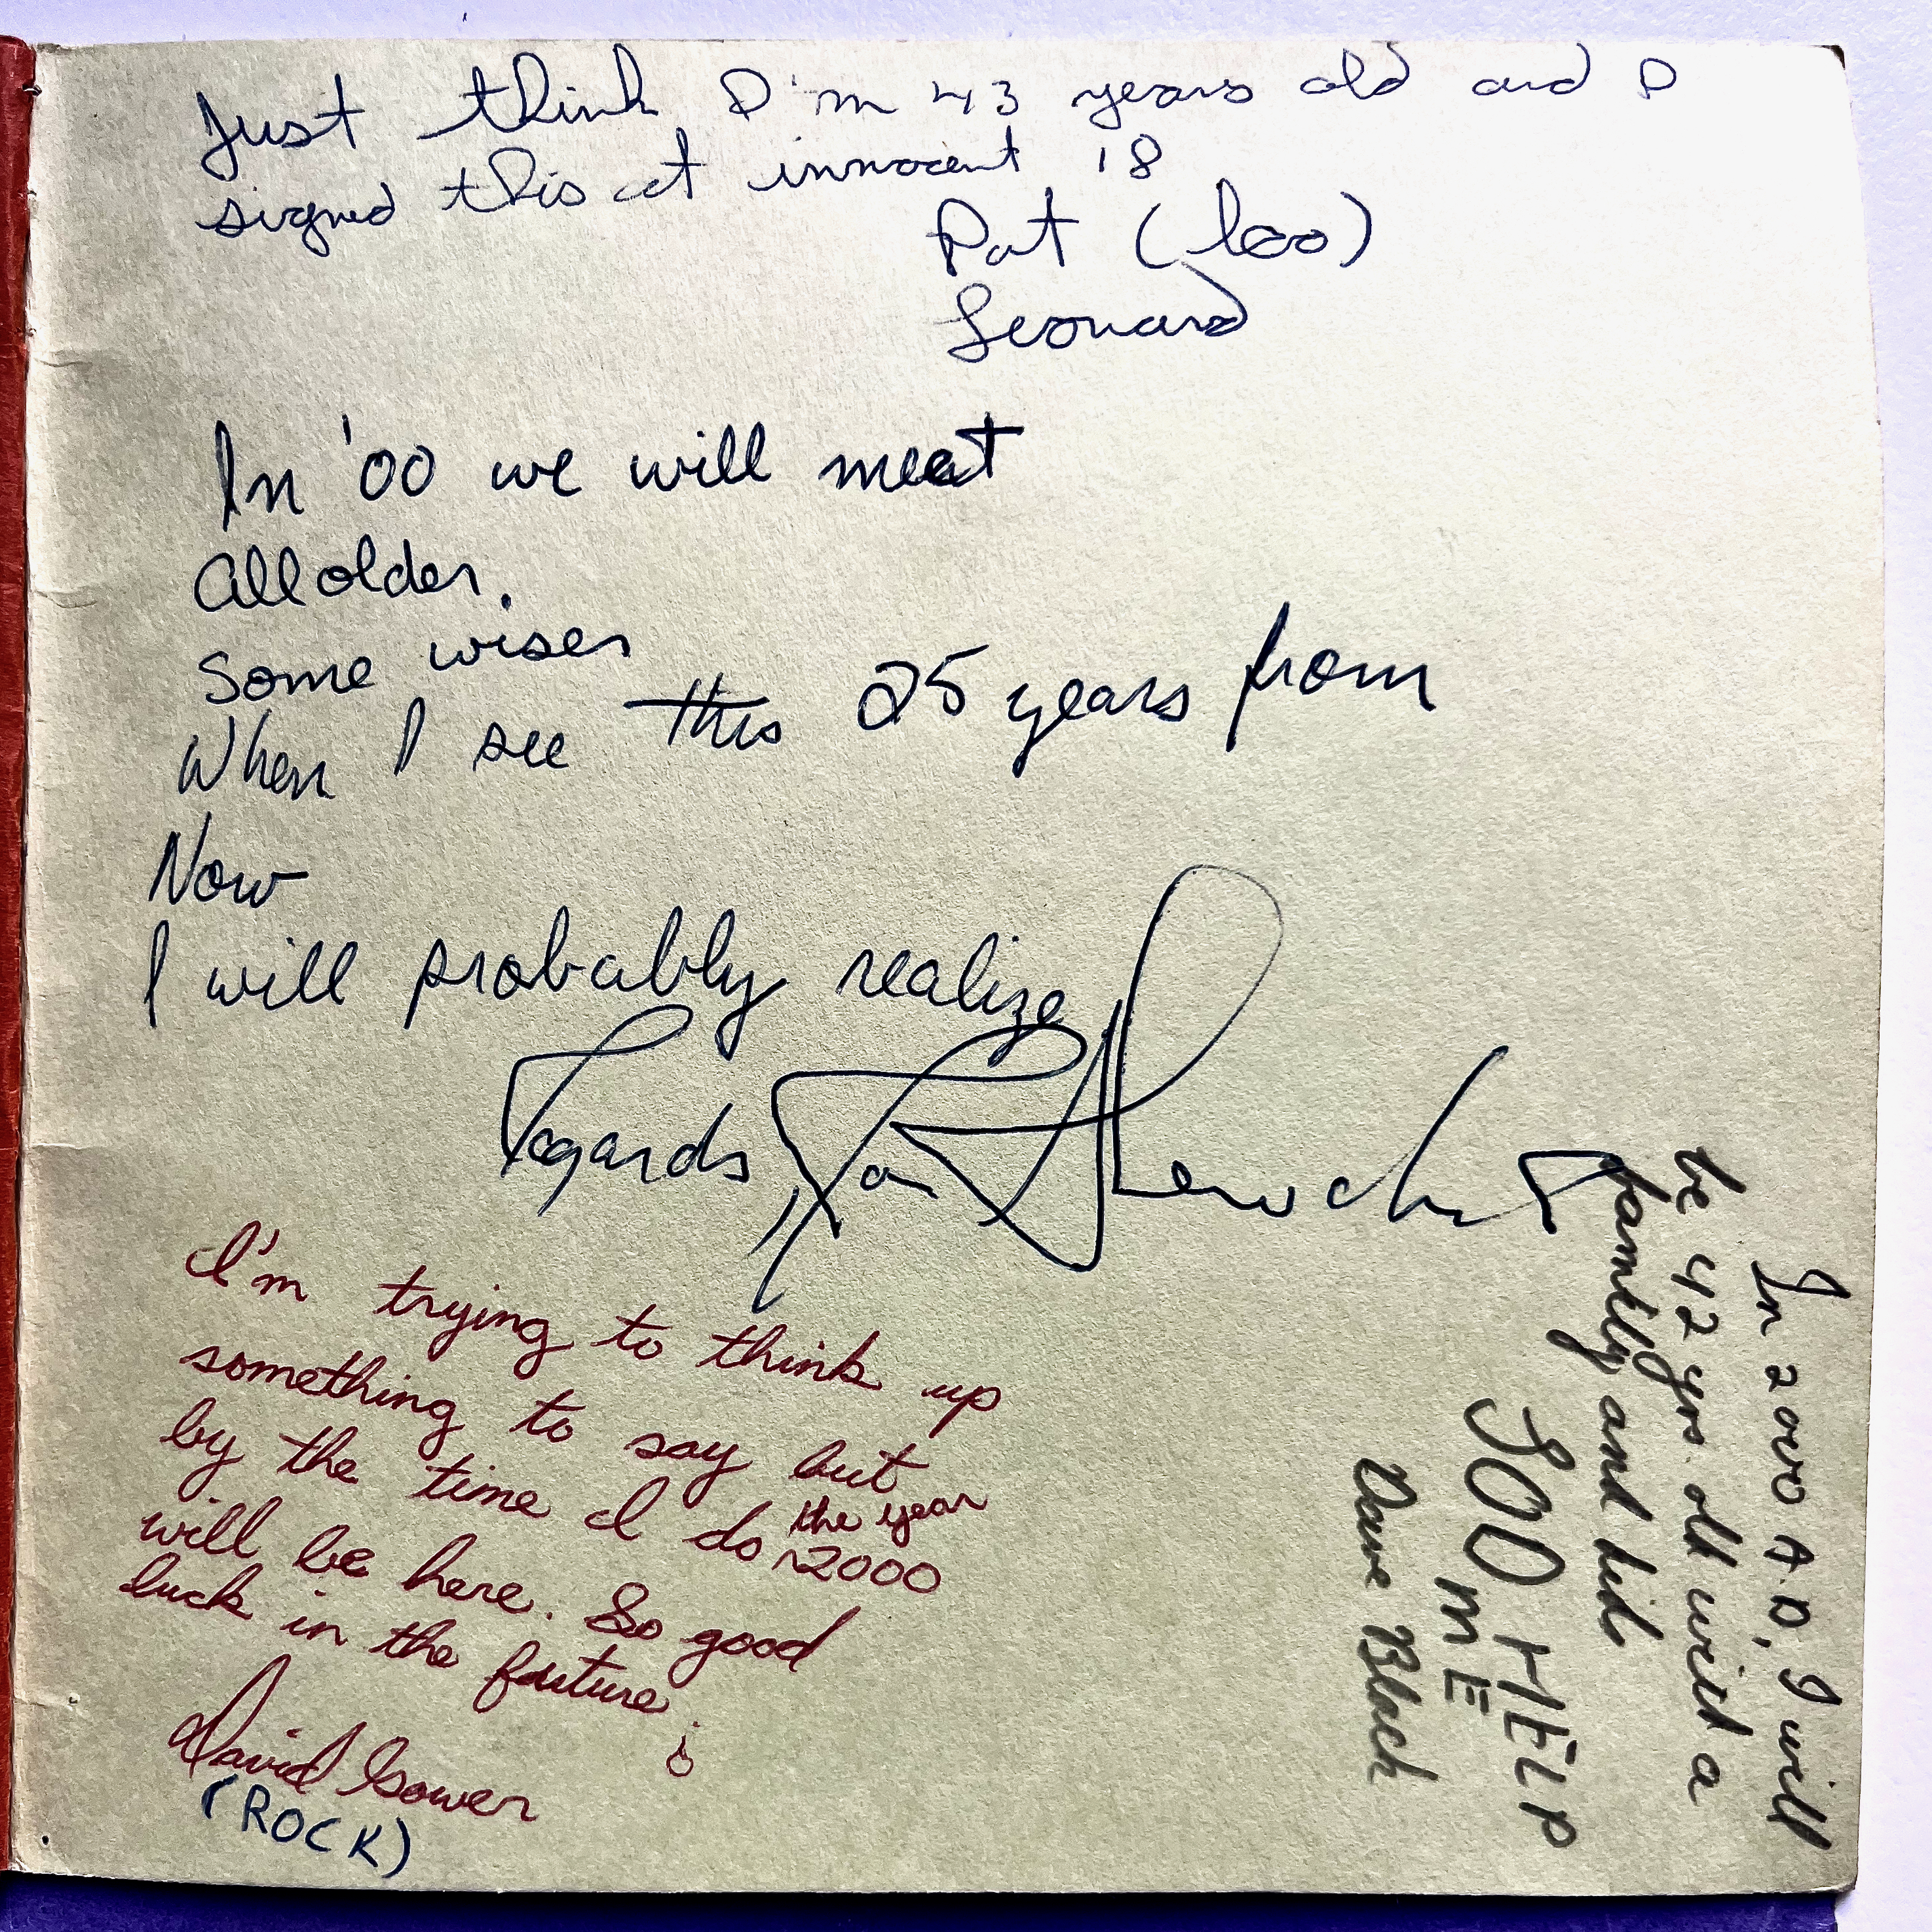 Just think I'm 43 years old and I
signed this at innocent 18
Pat (leo)
Leonard
In '00 we will meet
All older.
Some wiser
When I see this 25 years from
Now
I will probably realize
Regards,
I'm trying to think up
something to say but
by the time I do the year 2000
will be here. So good
luck in the future!
David Gower
(ROCK)
In 2000 A.D, I will
be 42 yrs. old with a
family and kids
GOD HELP
ME
Dave Black